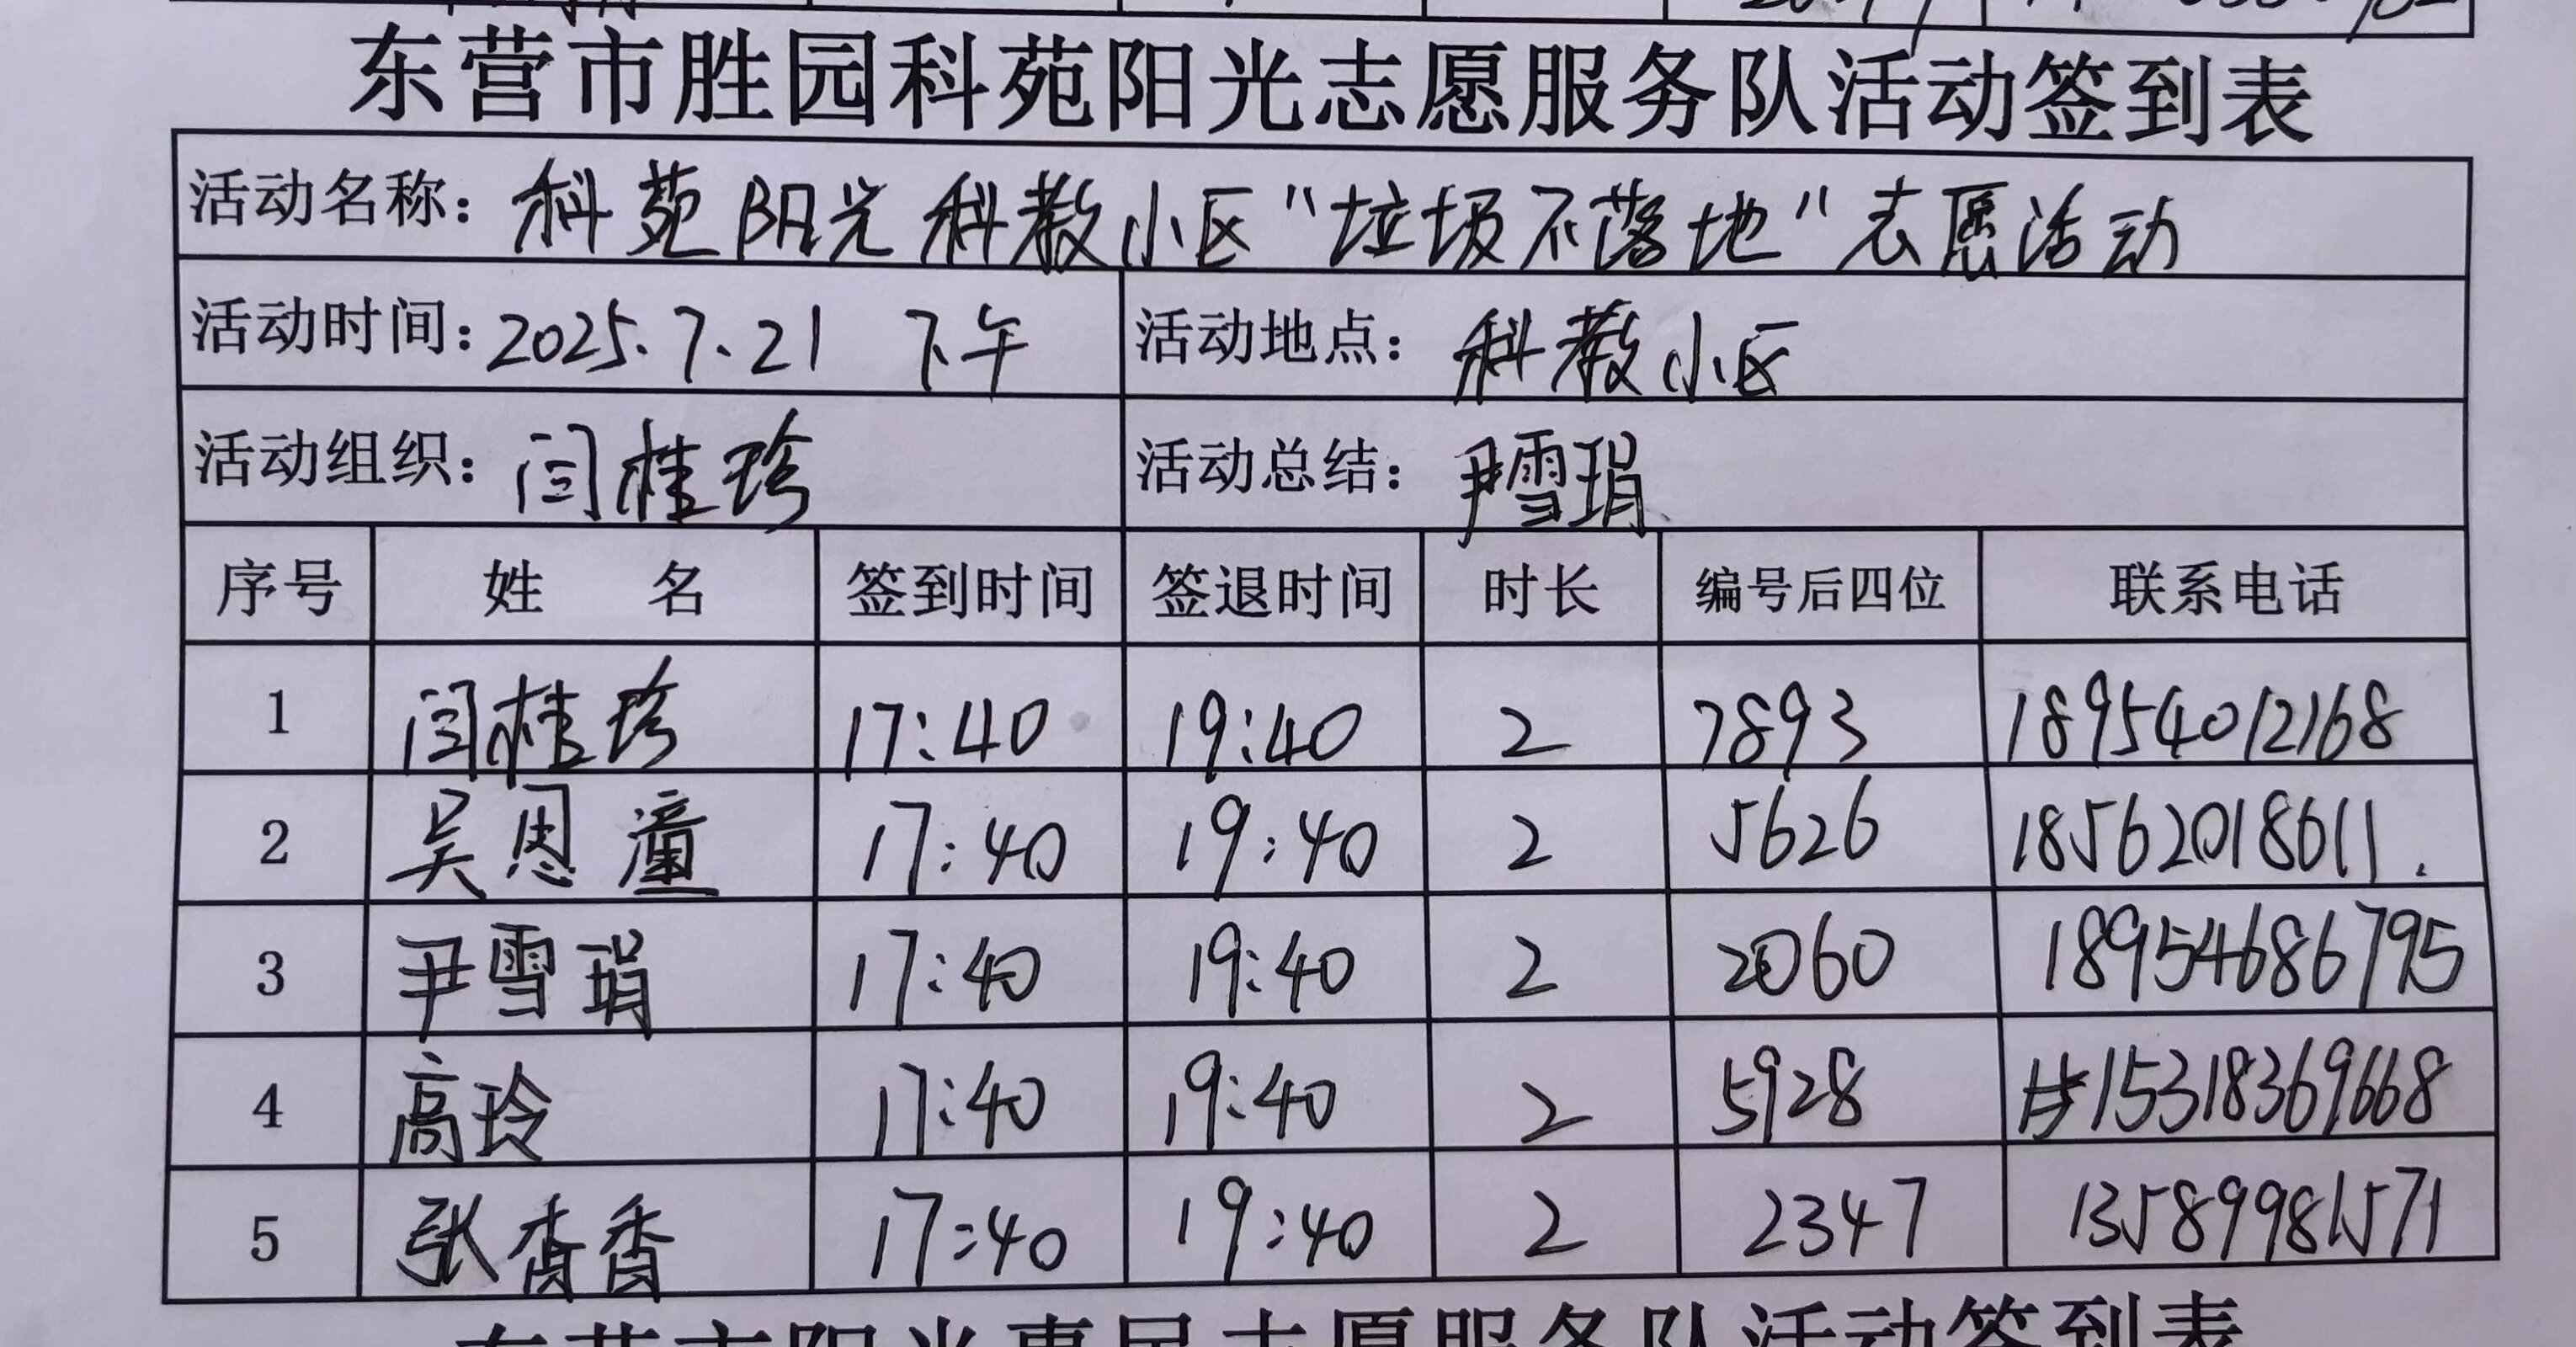 东营市胜园科苑阳光志愿服务队活动签到表
活动名称：科苑阳光科教小区“垃圾不落地”志愿活动
活动时间：2025.7.21 下午 活动地点：科教小区
活动组织：闫桂珍 活动总结：尹雪娟
序号 姓名 签到时间 签退时间 时长 编号后四位 联系电话
1 闫桂珍 17:40 19:40 2 7893 18954012168
2 吴恩潼 17:40 19:40 2 5626 18562018611.
3 尹雪娟 17:40 19:40 2 2060 18954686795
4 高玲 17:40 19:40 2 5928 15318369668
5 张香香 17:40 19:40 2 2347 13589981571
东营市阳光惠民志愿服务队活动签到表